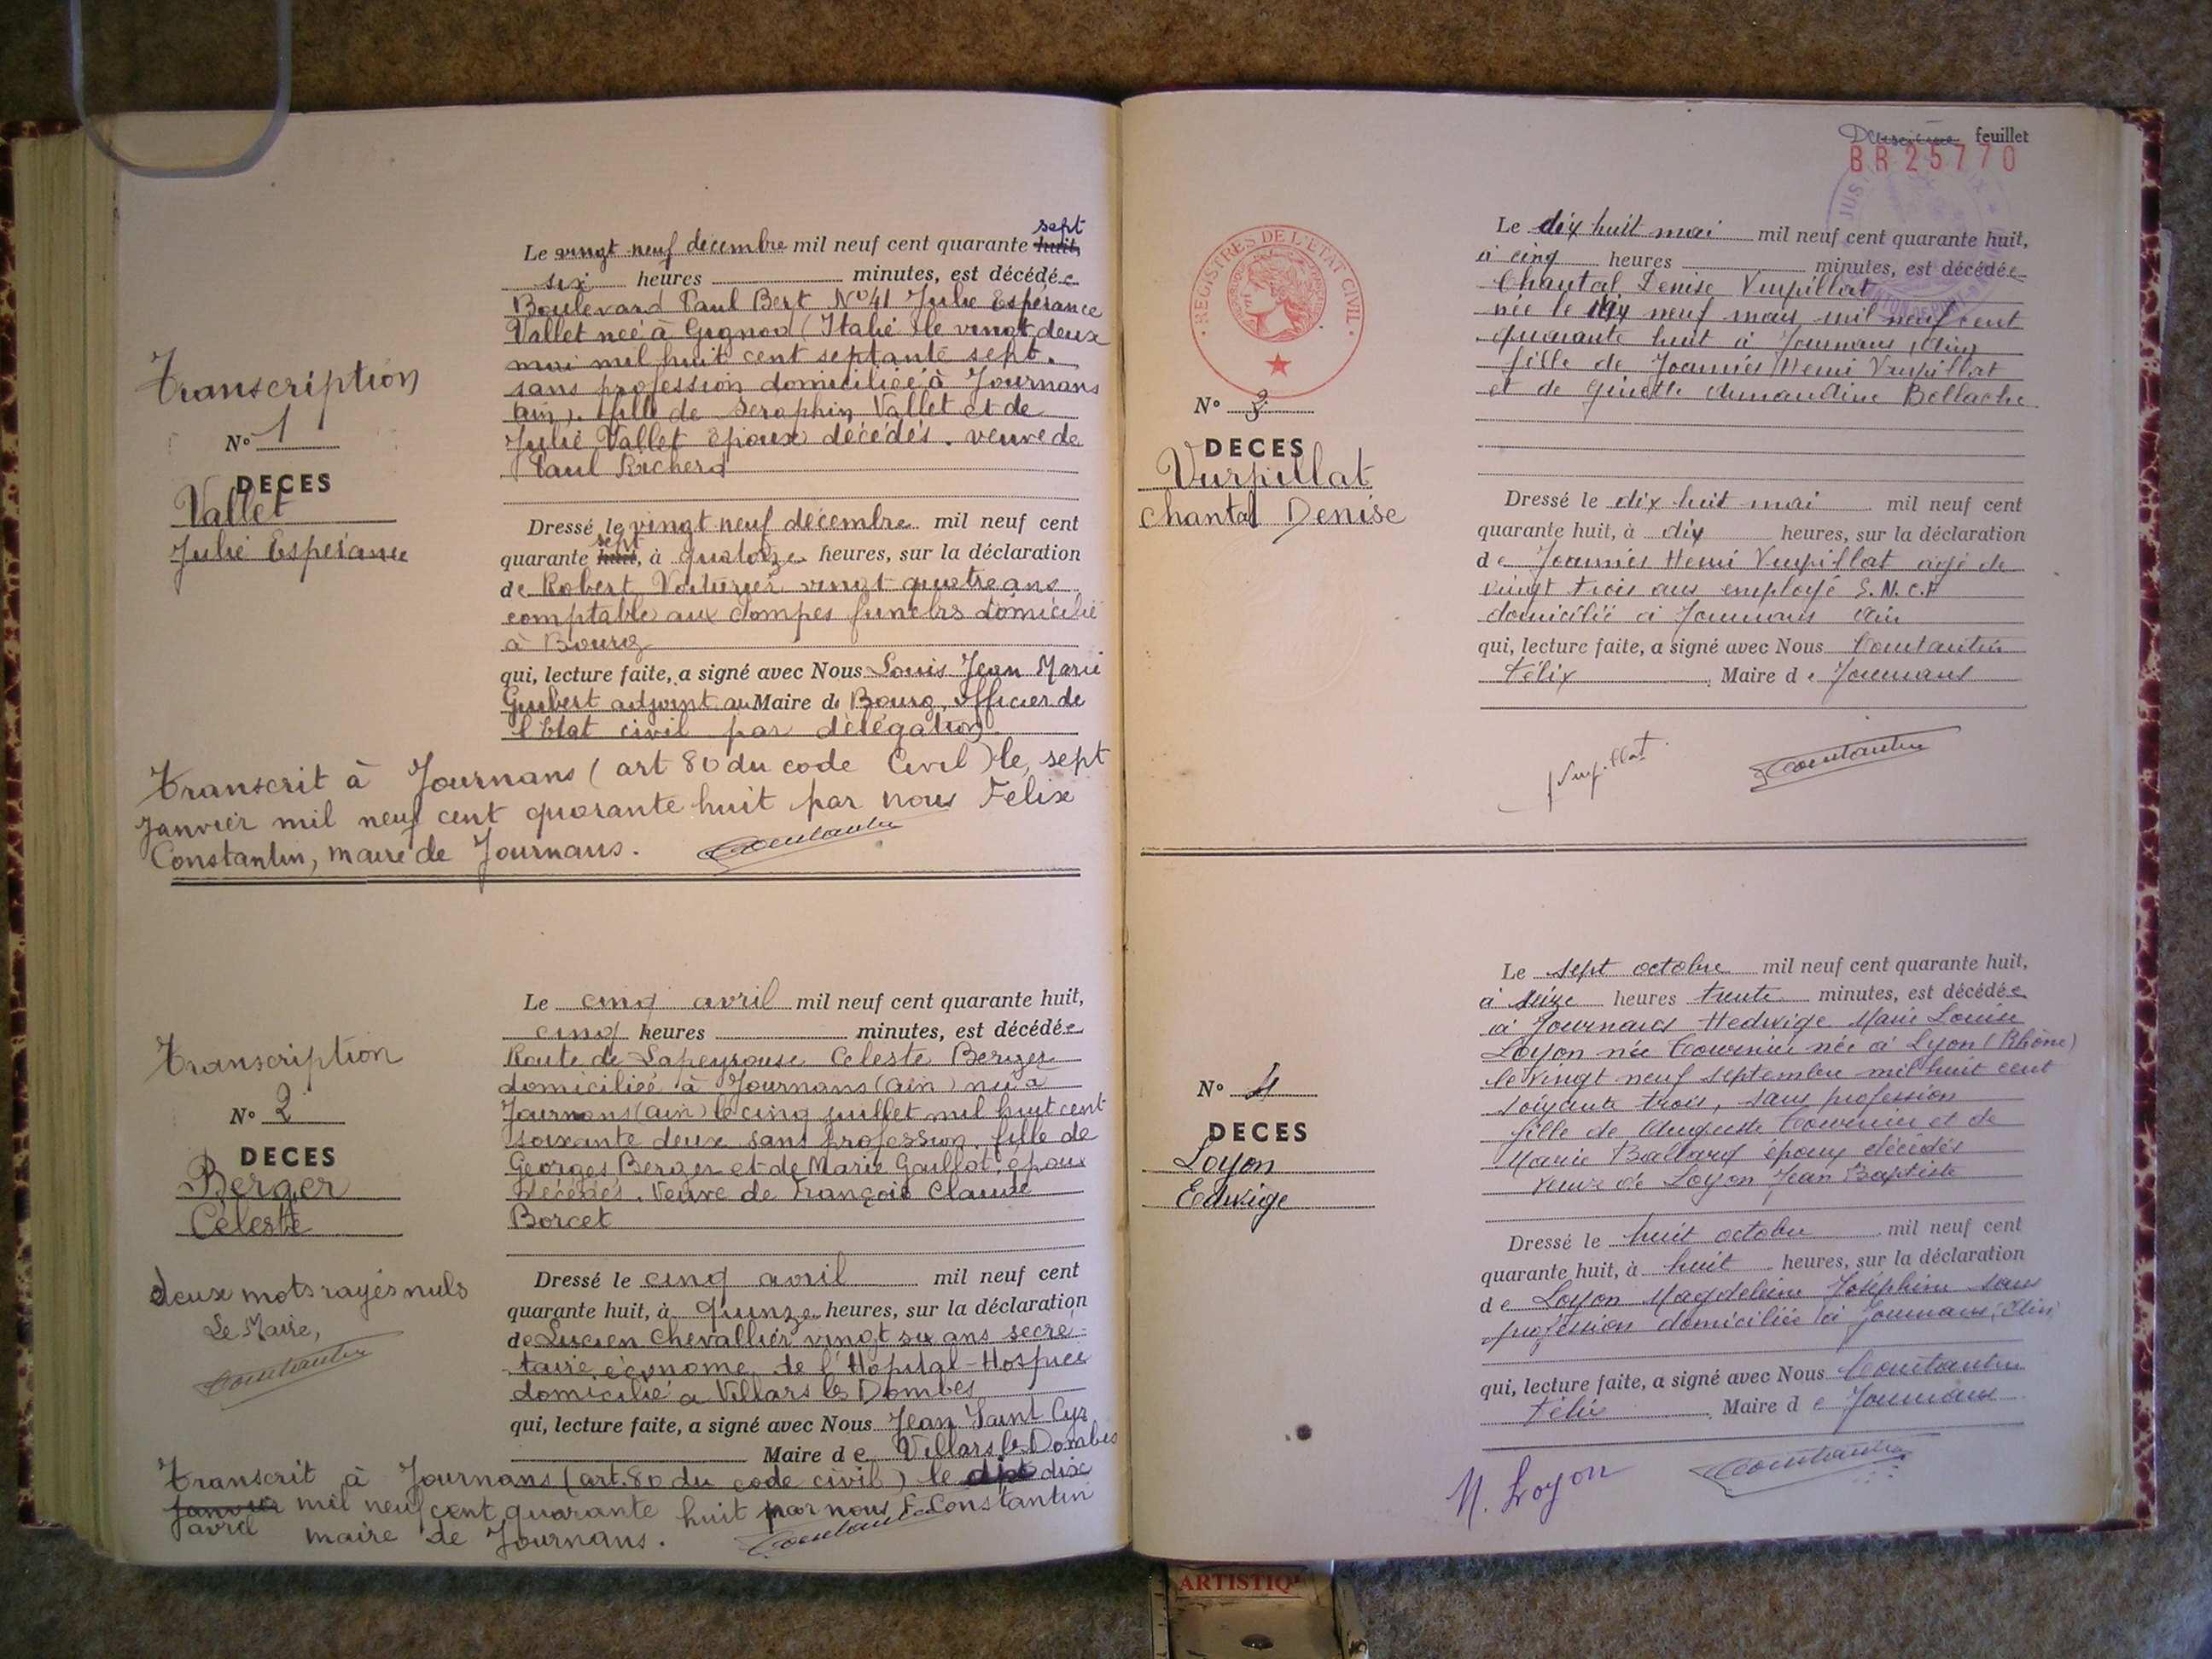 Transcription
N° 1
DECES
Vallet
Julie Espérance
sept
Le vingt neuf décembre mil neuf cent quarante huit,
six heures minutes, est décédée
Boulevard Paul Bert N°41 Julie Espérance
Vallet née à Gignod (Italie) le vingt deux
mai mil huit cent septante sept.
sans profession domiciliée à Journans
(ain). fille de Séraphin Vallet et de
Julie Vallet époux décédés. veuve de
Paul Richerd
Dressé le vingt neuf décembre mil neuf cent
sept
quarante huit, à quatorze heures, sur la déclaration
de Robert Voiturier vingt quatre ans
comptable aux Pompes funebrs domicilié
à Bourg
qui, lecture faite, a signé avec Nous Louis Jean Marie
Guibert adjoint au Maire de Bourg, officier de
l'Etat civil par délégation.
Transcrit à Journans (art 80 du code Civil) le, sept
Janvier mil neuf cent quarante huit par nous Felix
Constantin, maire de Journans. Constantin
Transcription
N° 2
DECES
Berger
Céleste
deux mots rayés nuls
Le Maire,
Constantin
Le cinq avril mil neuf cent quarante huit,
cinq heures minutes, est décédée
Route de Lapeyrouse Celeste Berger
domiciliée à Journans (ain) née à
Journans (ain) le cinq juillet mil huit cent
soixante deux sans profession. fille de
Georges Berger et de Marie Gaillot, époux
décédés. Veuve de François Claude
Borcet
Dressé le cinq avril mil neuf cent
quarante huit, à quinze heures, sur la déclaration
de Lucien Chevallier vingt six ans secré-
taire économe de l'Hôpital-Hospice
domicilié à Villars les Dombes
qui, lecture faite, a signé avec Nous Jean Saint Cyr
Maire de Villars les Dombes
Transcrit à Journans (art. 80 du code civil) le dix
Janvier mil neuf cent quarante huit par nous F. Constantin
avril maire de Journans. Constantin
Deuxième feuillet
BR25770
REGISTRES DE L'ETAT CIVIL
N° 3
DECES
Vurpillat
Chantal Denise
Le dix huit mai mil neuf cent quarante huit,
à cinq heures minutes, est décédée
Chantal Denise Vurpillat
née le dix neuf mars mil neuf cent
quarante huit à Journans (Ain)
fille de Joannès Henri Vurpillat
et de Ginette Amandine Bollache
Dressé le dix huit mai mil neuf cent
quarante huit, à dix heures, sur la déclaration
de Joannès Henri Vurpillat âgé de
vingt trois ans employé S.N.C.F
domicilié à Journans Ain
qui, lecture faite, a signé avec Nous Constantin
Félix Maire de Journans
Vurpillat Constantin
N° 4
DECES
Loyon
Edwige
Le sept octobre mil neuf cent quarante huit,
à seize heures trente minutes, est décédée
à Journans Hedwige Marie Louise
Loyon née Tournier née à Lyon (Rhône)
le vingt neuf septembre mil huit cent
soixante trois, sans profession
fille de Auguste Tournier et de
Marie Ballard époux décédés
veuve de Loyon Jean Baptiste
Dressé le huit octobre mil neuf cent
quarante huit, à huit heures, sur la déclaration
de Loyon Magdeleine Joséphine sans
profession domiciliée à Journans, Ain
qui, lecture faite, a signé avec Nous Constantin
Félix Maire de Journans
M. Loyon Constantin
ARTISTIQ